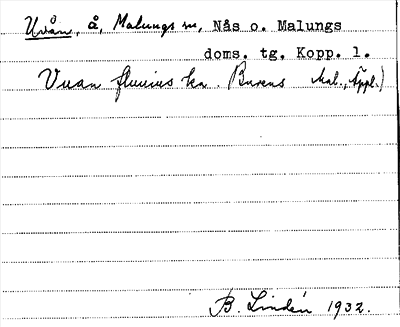 Uvån, å, Malungs sn, Nås o. Malungs
doms. tg, Kopp. l.
Vuan fluuius ka. Burens
B. Lindén 1932.